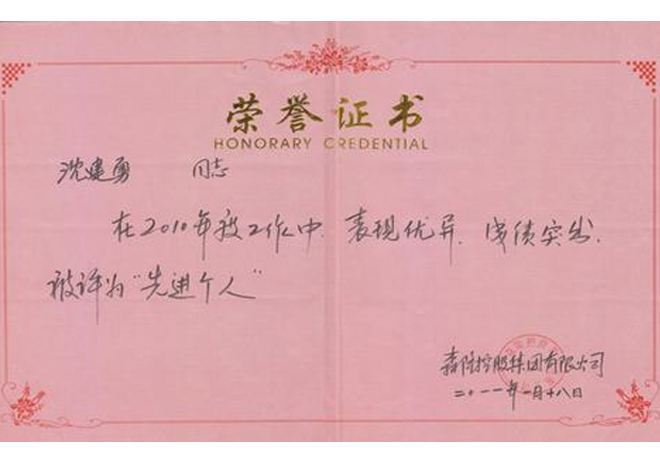 荣誉证书
HONORARY CREDENTIAL
沈建勇 同志
在2010年度工作中,表现优异,成绩突出,
被评为“先进个人”
森陆控股集团有限公司
二〇一一年一月十八日